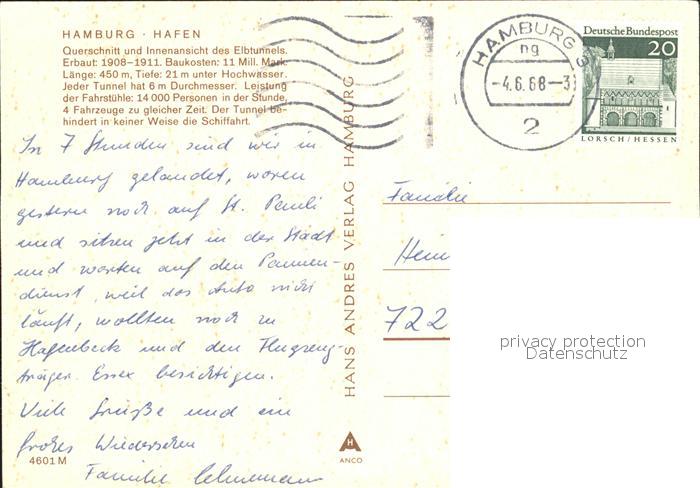 HAMBURG · HAFEN
Querschnitt und Innenansicht des Elbtunnels.
Erbaut: 1908–1911. Baukosten: 11 Mill. Mark.
Länge: 450 m, Tiefe: 21 m unter Hochwasser.
Jeder Tunnel hat 6 m Durchmesser. Leistung
der Fahrstühle: 14 000 Personen in der Stunde,
4 Fahrzeuge zu gleicher Zeit. Der Tunnel be-
hindert in keiner Weise die Schiffahrt.
In 7 Stunden sind wir in
Hamburg gelandet, waren
gestern noch auf St. Pauli
und sitzen jetzt in der Stadt
und warten auf den Pannen-
dienst, weil das Auto nicht
läuft, wollten noch zu
Hagenbeck und den Flugzeug-
träger Essex besichtigen.
Viele Grüße und ein
frohes Wiedersehen
Familie Lehnemann
4601 M
HANS ANDRES VERLAG HAMBURG
H
ANCO
HAMBURG 3
ng
-4.6.68-3
2
Deutsche Bundespost
20
LORSCH / HESSEN
Familie
Hein
722
privacy protection
Datenschutz